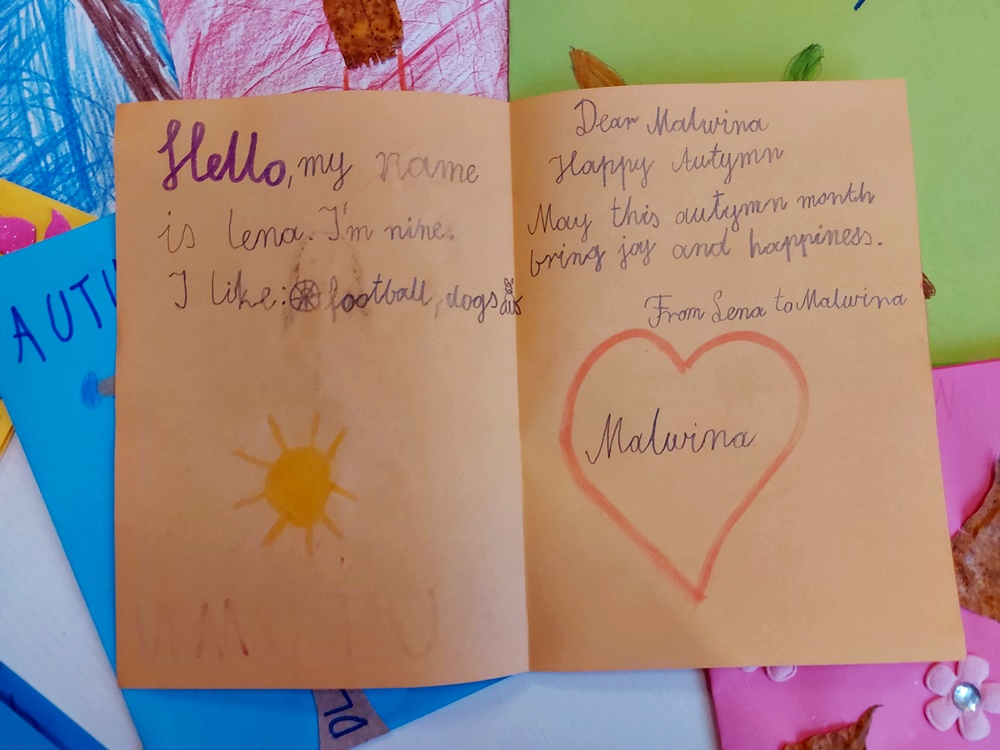 Hello, my name
is lena. I'm nine.
I like: football, dogs
Dear Malwina
Happy Autymn
May this autymn month
bring joy and happiness.
From Lena to Malwina
Malwina
AUTU